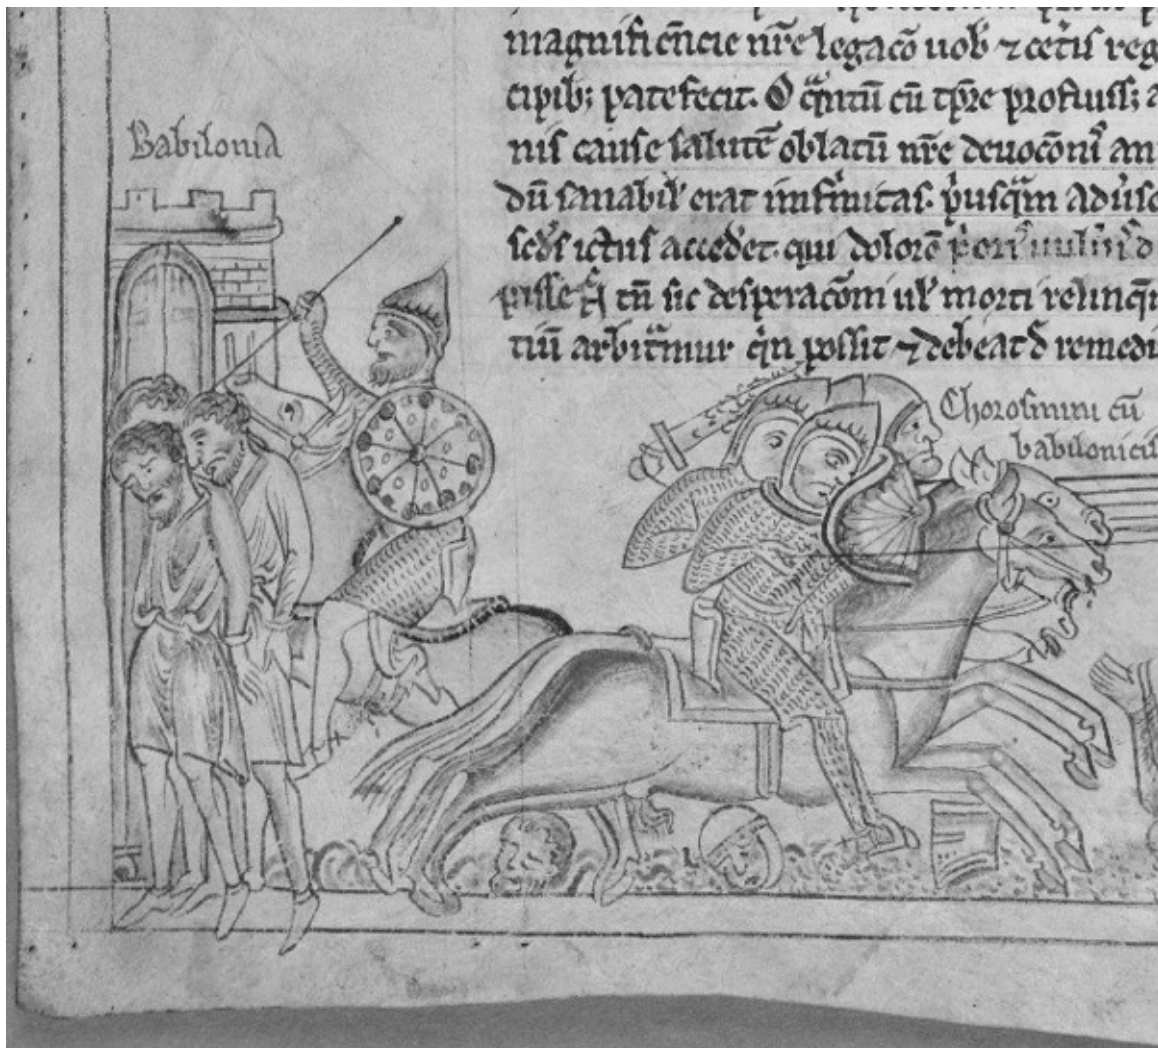 Babilonia
magnificēcie nr̄e legacō uob̄ ⁊ cet̄is reg
cipib; patefecit. O q̄ntū cū tp̄re profuiss; a
nis cause salutē oblatū nr̄e deuocōni an
dū sanabil' erat infirmitas. p̄usq̄m adūse
ictus accedet. qui dolorē
tū sic desperacōni ul' morti relinq̄
tiū arbit̄mur q̄n possit ⁊ debeat d̄ remedi
Chorosmini cū
babilonicis